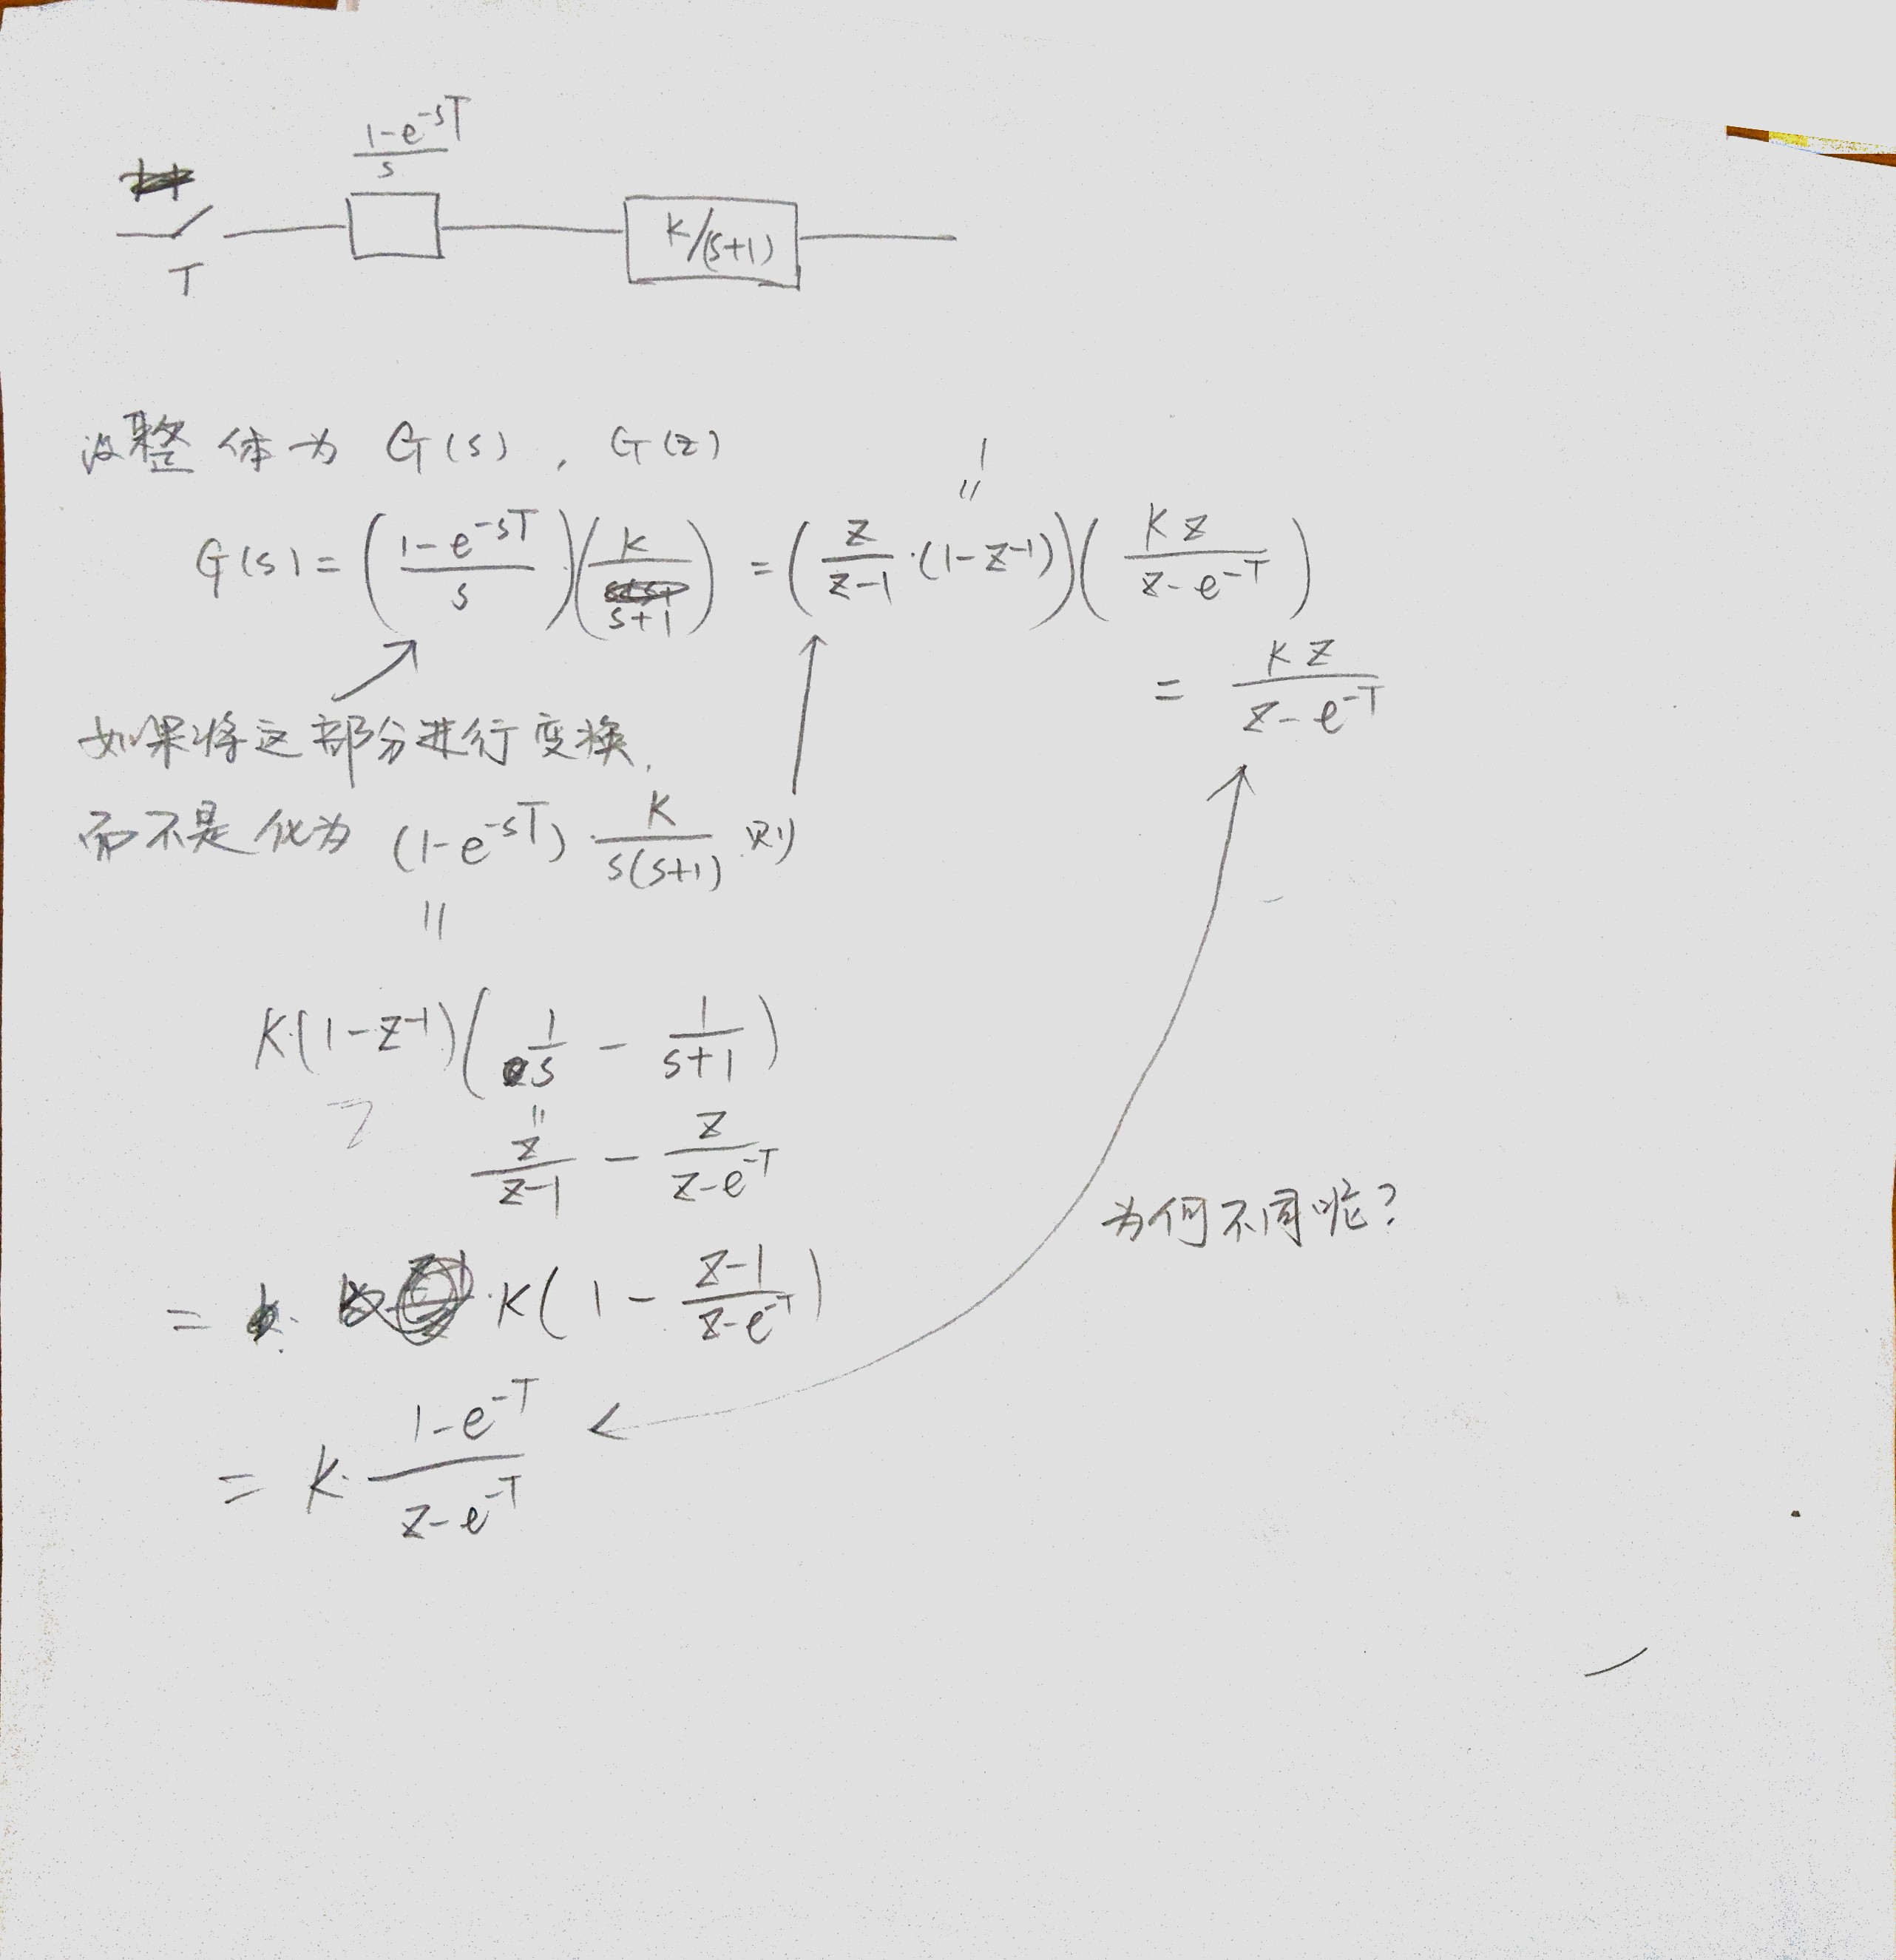 (1-e^{-sT})/s
T
K/(s+1)
设整体为 G(s), G(z)
1
"
G(s) = ((1-e^{-sT})/s)(K/(s+1)) = (z/(z-1)·(1-z^{-1}))(Kz/(z-e^{-T}))
= Kz/(z-e^{-T})
如果将这部分进行变换,
而不是化为 (1-e^{-sT})·K/(s(s+1)) 则
"
K·(1-z^{-1})(1/s - 1/(s+1))
"
z/(z-1) - z/(z-e^{-T})
为何不同呢?
= K(1 - (z-1)/(z-e^{-T}))
= K·(1-e^{-T})/(z-e^{-T})